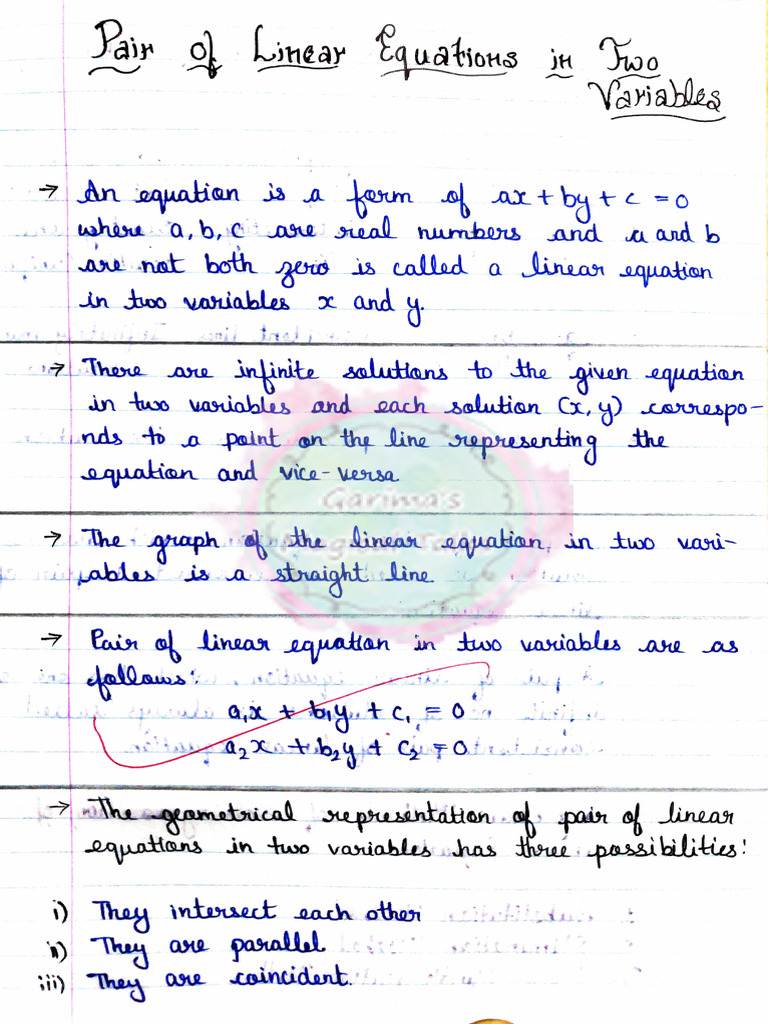 Pair of Linear Equations in Two
Variables
→ An equation is a form of ax + by + c = 0
where a, b, c are real numbers and a and b
are not both zero is called a linear equation
in two variables x and y.
→ There are infinite solutions to the given equation
in two variables and each solution (x, y) correspo-
nds to a point on the line representing the
equation and vice-versa
Garima's
→ The graph of the linear equation, in two vari-
ables is a straight line
→ Pair of linear equation in two variables are as
follows:
a₁x + b₁y + c₁ = 0
a₂x + b₂y + c₂ = 0
→ The geometrical representation of pair of linear
equations in two variables has three possibilities:
i) They intersect each other
ii) They are parallel
iii) They are coincident.